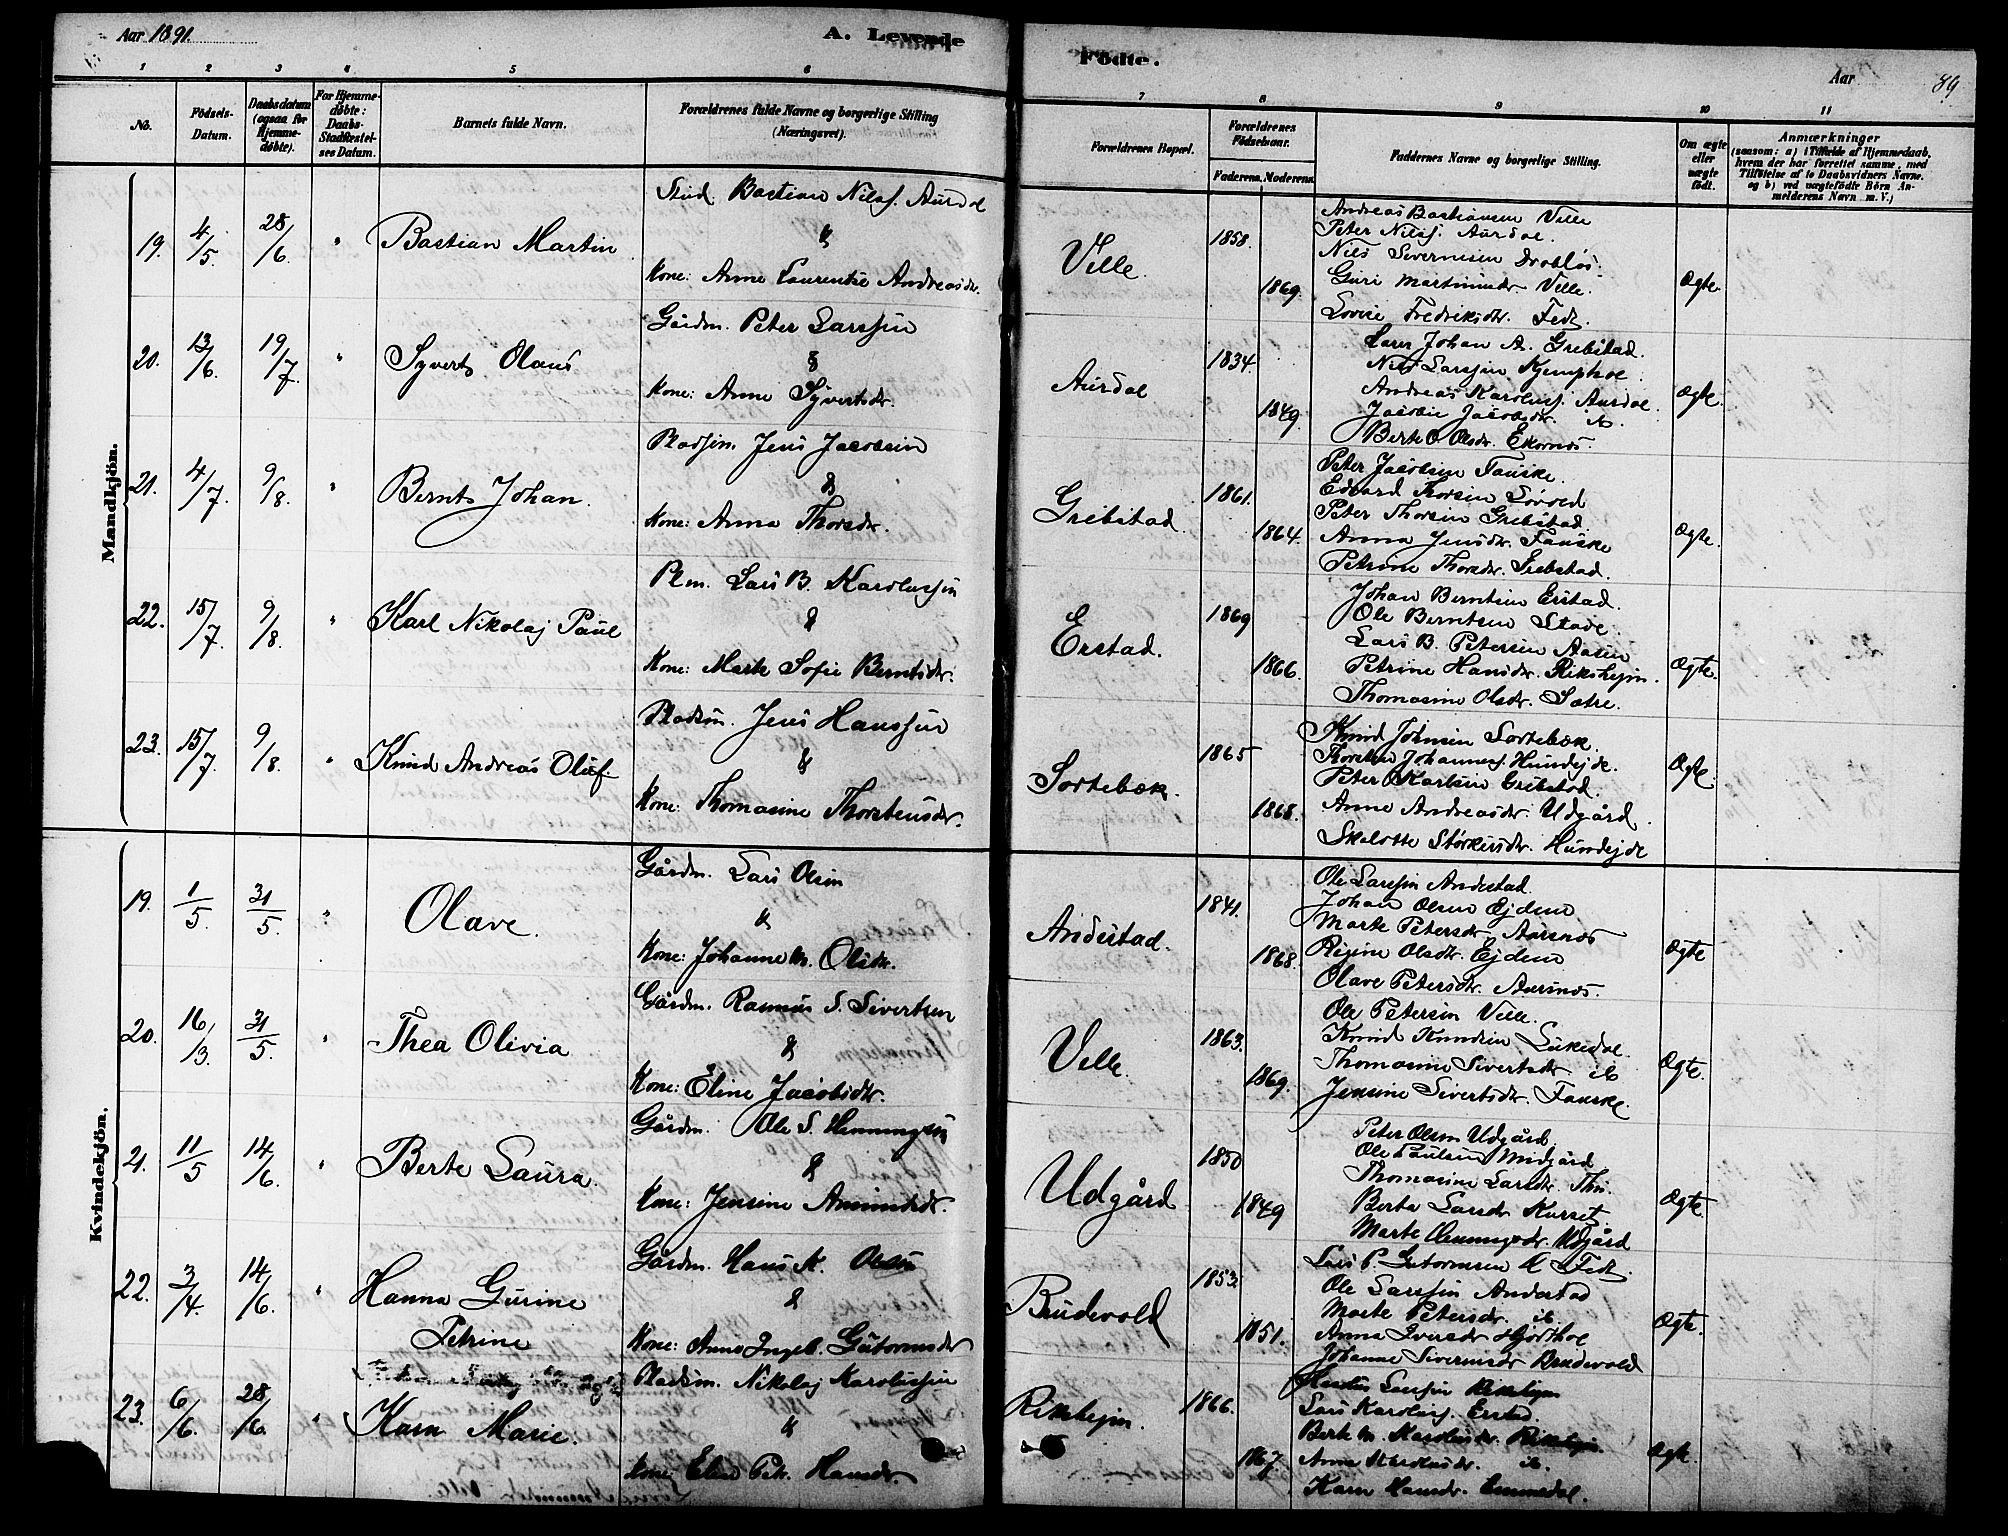 Aar 1891.
A. Levende
Födte.
Aar
89
1 2 3 4 5 6
7 8 9 10 11
No.
Födsels-
Datum.
Daabsdatum
(ogsaa for
Hjemme-
döbte).
For Hjemme-
döbte:
Daabs-
Stadfæstel-
ses Datum.
Barnets fulde Navn.
Forældrenes fulde Navne og borgerlige Stilling
(Næringsvei).
Forældrenes Bopæl.
Forældrenes
Födselsaar.
Faderens. Moderens.
Faddernes Navne og borgerlige Stilling.
Om ægte
eller
uægte
födt.
Anmærkninger
(saasom: a) i Tilfælde af Hjemmedaab,
hvem der har forrettet samme, med
Tilföielse af to Daabsvidners Navne.
og b) ved uægtefödte Börn An-
melderens Navn m. V.)
Mandkjön.
19. 4/5. 28/6. " Bastian Martin
Bastian Nilss. Aurdal
&
Kone: Anne Laurentse Andreasdr.
Velle. 1858. 1869.
Andreas Bastiansen Velle
Peter Nilss. Aurdal.
Nils Severinsen Drabløs.
Guri Martinusdr. Velle.
Lovise Fredriksdr. Fedt.
Ægte.
20. 13/6. 19/7. " Syvert Olaus
Gårdm. Peter Larssen
&
Kone: Anne Syvertsdr.
Aurdal 1834. 1849.
Johan A. Grebstad.
Nils Larssen Kjemphol
Andreas Karoluss. Aurdal.
Jacobie Jacobsdr. ib.
Berte O. Olsdr. Ekornæs.
Ægte.
21. 4/7. 9/8. " Bernt Johan.
Pladsm. Jens Jacobsen
&
Kone: Anna Thorsdr.
Grebstad. 1861. 1864.
Peter Jacobsen Fauske.
Edvard Thorsen Løvoed
Peter Thorsen Grebstad.
Anna Jensdr. Fauske
Petrine Thorsdr. Grebstad.
Ægte.
22. 15/7. 9/8. " Karl Nikolaj Paul
Plm. Lars B. Karolussen
&
Kone: Marte Sofie Berntsdr.
Erstad. 1869 1866.
Johan Berntsen Erstad.
Ole Berntsen Stave.
Lars B. Petersen Aasen
Petrine Hansdr. Rikshejm.
Thomasine Olsdr. Sætre.
Ægte.
23. 15/7. 9/8. " Knud Andreas Oluf.
Pladsm. Jens Hanssen
&
Kone: Thomasine Thorstensdr.
Sortebæk. 1865 1868.
Knud Johnsen Sortebæk.
Thorsten Johanness. Hundejde.
Peter Karlsen Grebstad.
Anne Andreasdr. Udgård.
Skalotte Størkersdr. Hundejde
Ægte.
Kvindekjön.
19. 1/5. 31/5. " Olave.
Gårdm. Lars Olsen
&
Kone: Johanne M. Olsdr.
Andestad. 1841. 1868.
Ole Larssen Andestad.
Johan Olsen Ejdem
Marte Petersdr. Aarsnæs
Regine Olsdr. Ejdem
Olave Petersdr. Aarsnæs.
Ægte
20. 16/3. 31/5. " Thea Olivia
Gårdm. Rasmus S. Sivertsen
&
Kone: Eline Jacobsdr.
Velle. 1863. 1869.
Ole Petersen Velle.
Knud Knudsen
Thomasine Sivertsdr ib
Jensine Sivertsdr. Fauske.
Ægte.
21. 11/5 14/6. " Berte Laura.
Gårdm. Ole S. Henningsen
&
Kone: Jensine Amundsdr.
Udgård 1850 1849
Peter Olsen Udgård.
Ole Paulsen Midgård
Thomasine Larsdr. Thu.
Berte Larsdr Kurset
Marte Henningsdr. Udgård
Ægte.
22. 3/4. 14/6. " Hanna Gurine
Petrine
Gårdm. Hans K. Olsen
&
Kone: Anne Ingeb. Gutormsdr
Brudevold 1853. 1851.
Lars P. Gutormsen Fedt.
Ole Larssen Andestad
Marte Petersdr. ib.
Anna Iversdr Hjorthol
Johanne Siversdr Brudevold
Ægte.
23. 6/6. 28/6. " Karn Marie.
Pladsm. Nikolaj Karolussen
&
Kone: Elen Pet. Hansdr.
Rikshejm. 1866. 1867.
Larssen Rikshejm
Lars Karoluss. Erstad.
Berte M. Karolusdr. Rikshejm
Anna Karolusdr. ib.
Karn Hansdr. Emmedal.
Ægte.